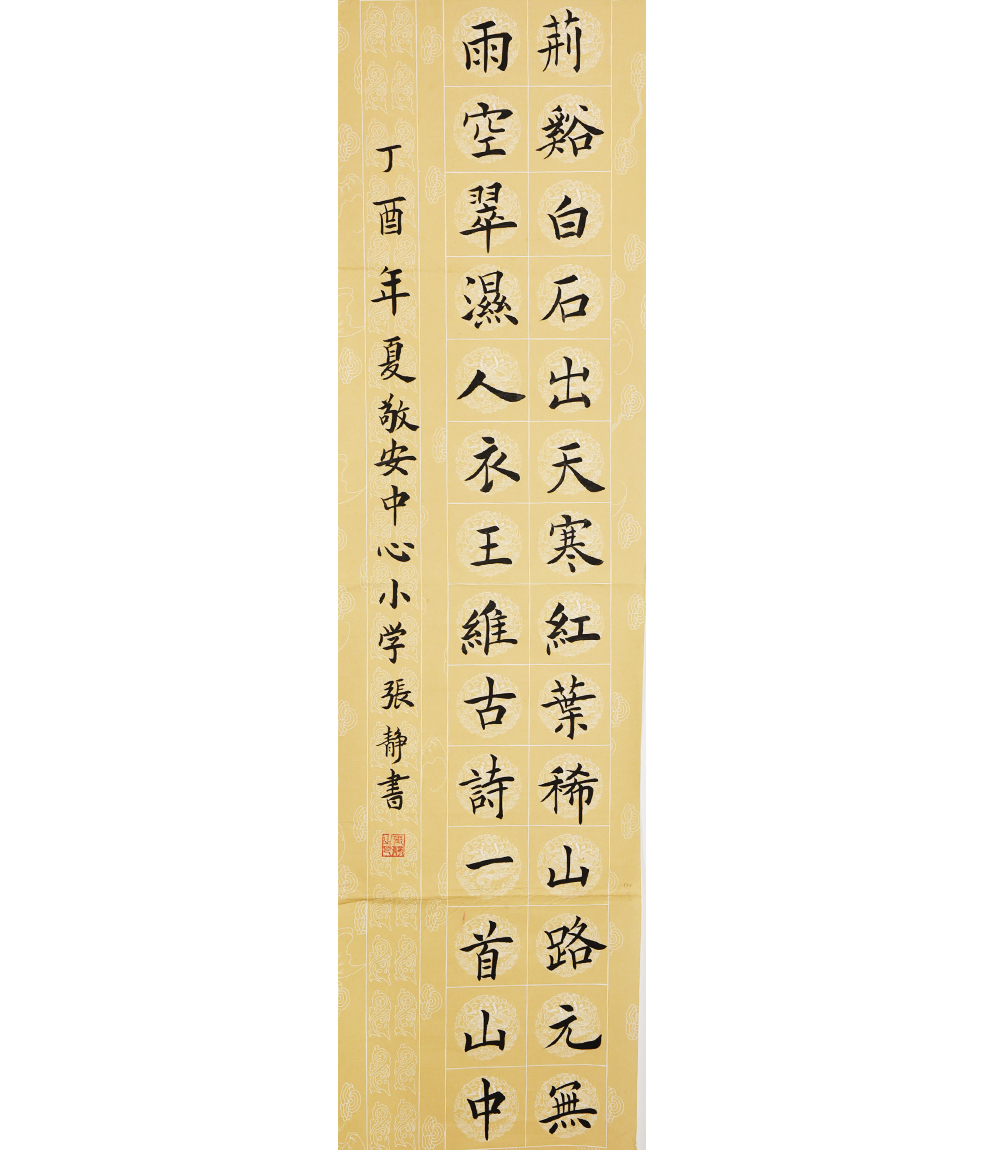 荆谿白石出天寒紅葉稀山路元無
雨空翠濕人衣王維古詩一首山中
丁酉年夏敬安中心小学張静書